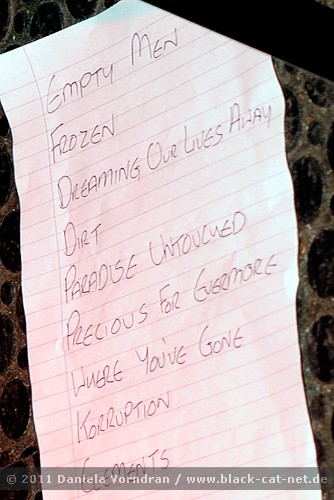 EMPTY MEN
FROZEN
DREAMING OUR LIVES AWAY
DIRT
PARADISE UNTOUCHED
PRECIOUS FOR EVERMORE
WHERE YOU'VE GONE
KORRUPTION
ELEMENTS
© 2011 Daniela Vorndran / www.black-cat-net.de